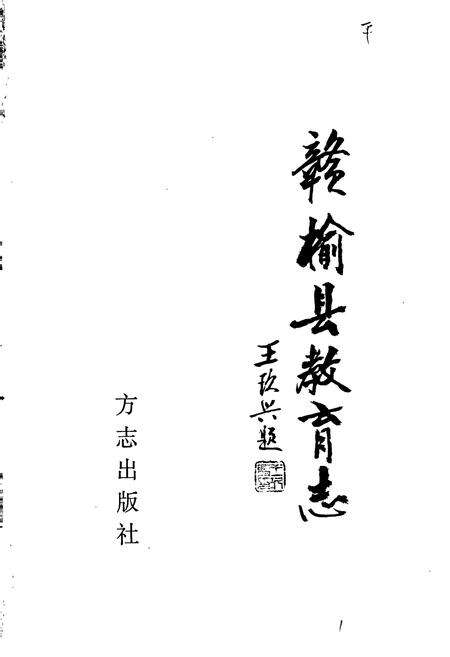 赣榆县教育志
王玖兴题
方志出版社
1